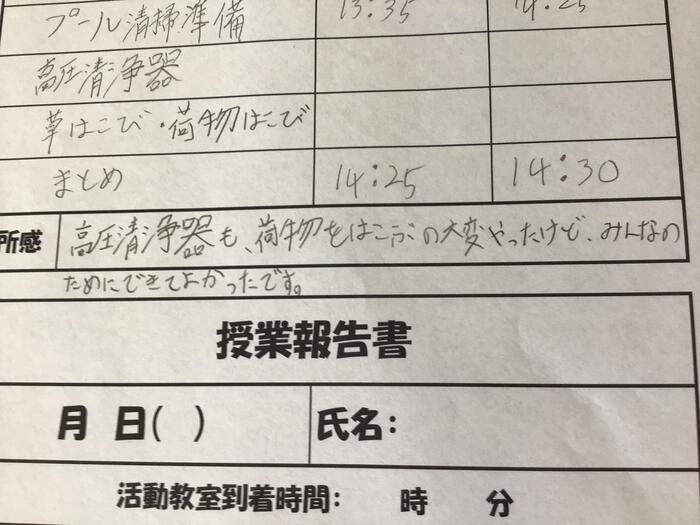 プール清掃準備 13:35 14:25
高圧清浄器
草はこび・荷物はこび
まとめ 14:25 14:30
所感 高圧清浄器も、荷物をはこぶの大変やったけど、みんなの
ためにできてよかったです。
授業報告書
月 日( ) 氏名:
活動教室到着時間: 時 分